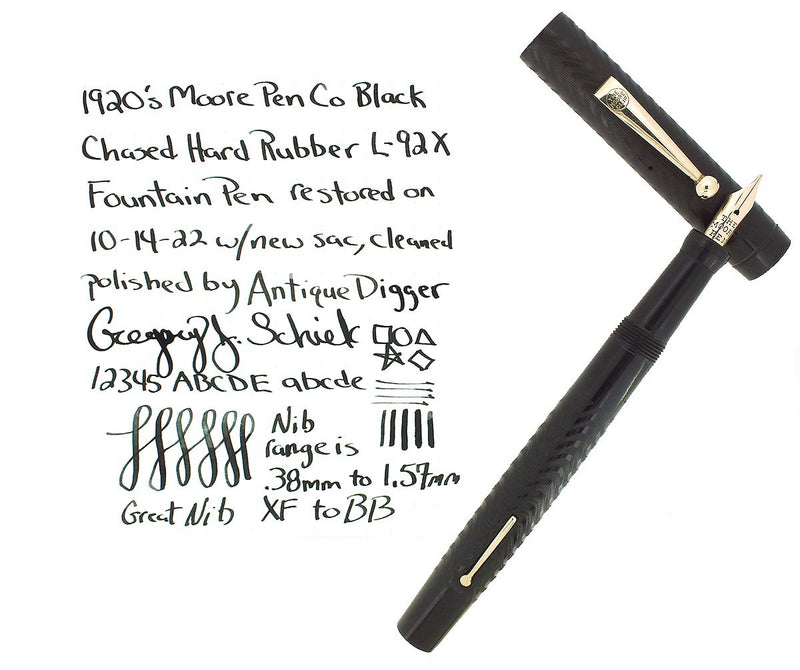 1920's Moore Pen Co Black
Chased Hard Rubber L-92X
Fountain Pen restored on
10-14-22 w/new sac, cleaned
polished by Antique Digger
Gregory J. Schiek
12345 ABCDE abcde
Nib
range is
.38mm to 1.57mm
Great Nib XF to BB
THE
MOORE